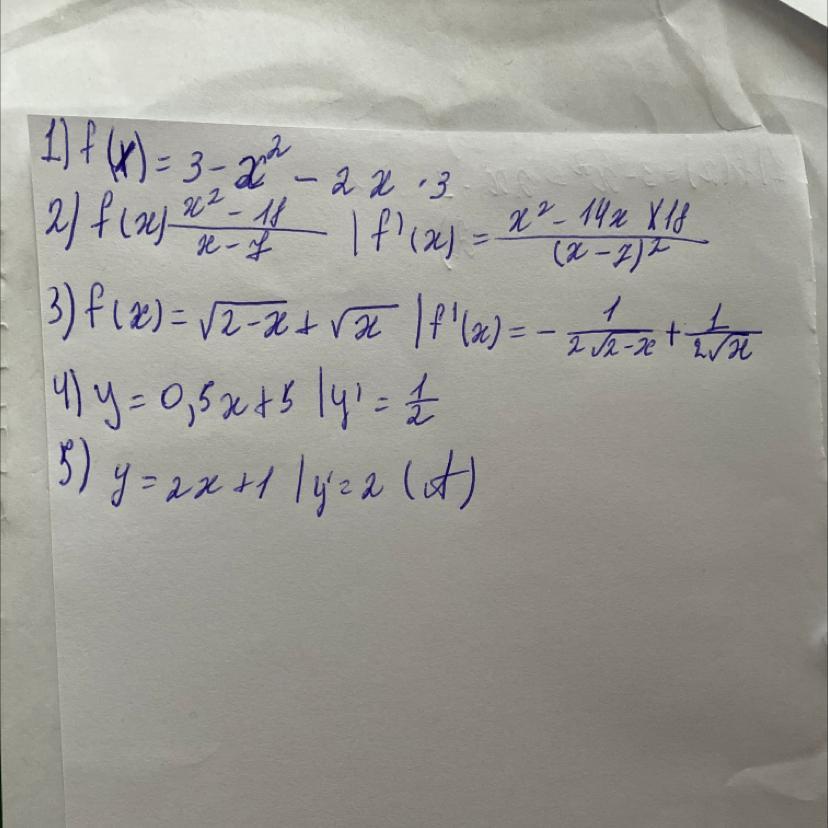 1) f(x) = 3 - x² - 2x · 3
2) f(x) \frac{x² - 18}{x - 7} | f'(x) = \frac{x² - 14x + 18}{(x - 7)²}
3) f(x) = √(2-x) + √x | f'(x) = - \frac{1}{2√(2-x)} + \frac{1}{2√x}
4) y = 0,5x + 5 | y' = \frac{1}{2}
5) y = 2x + 1 | y' = 2 (A)